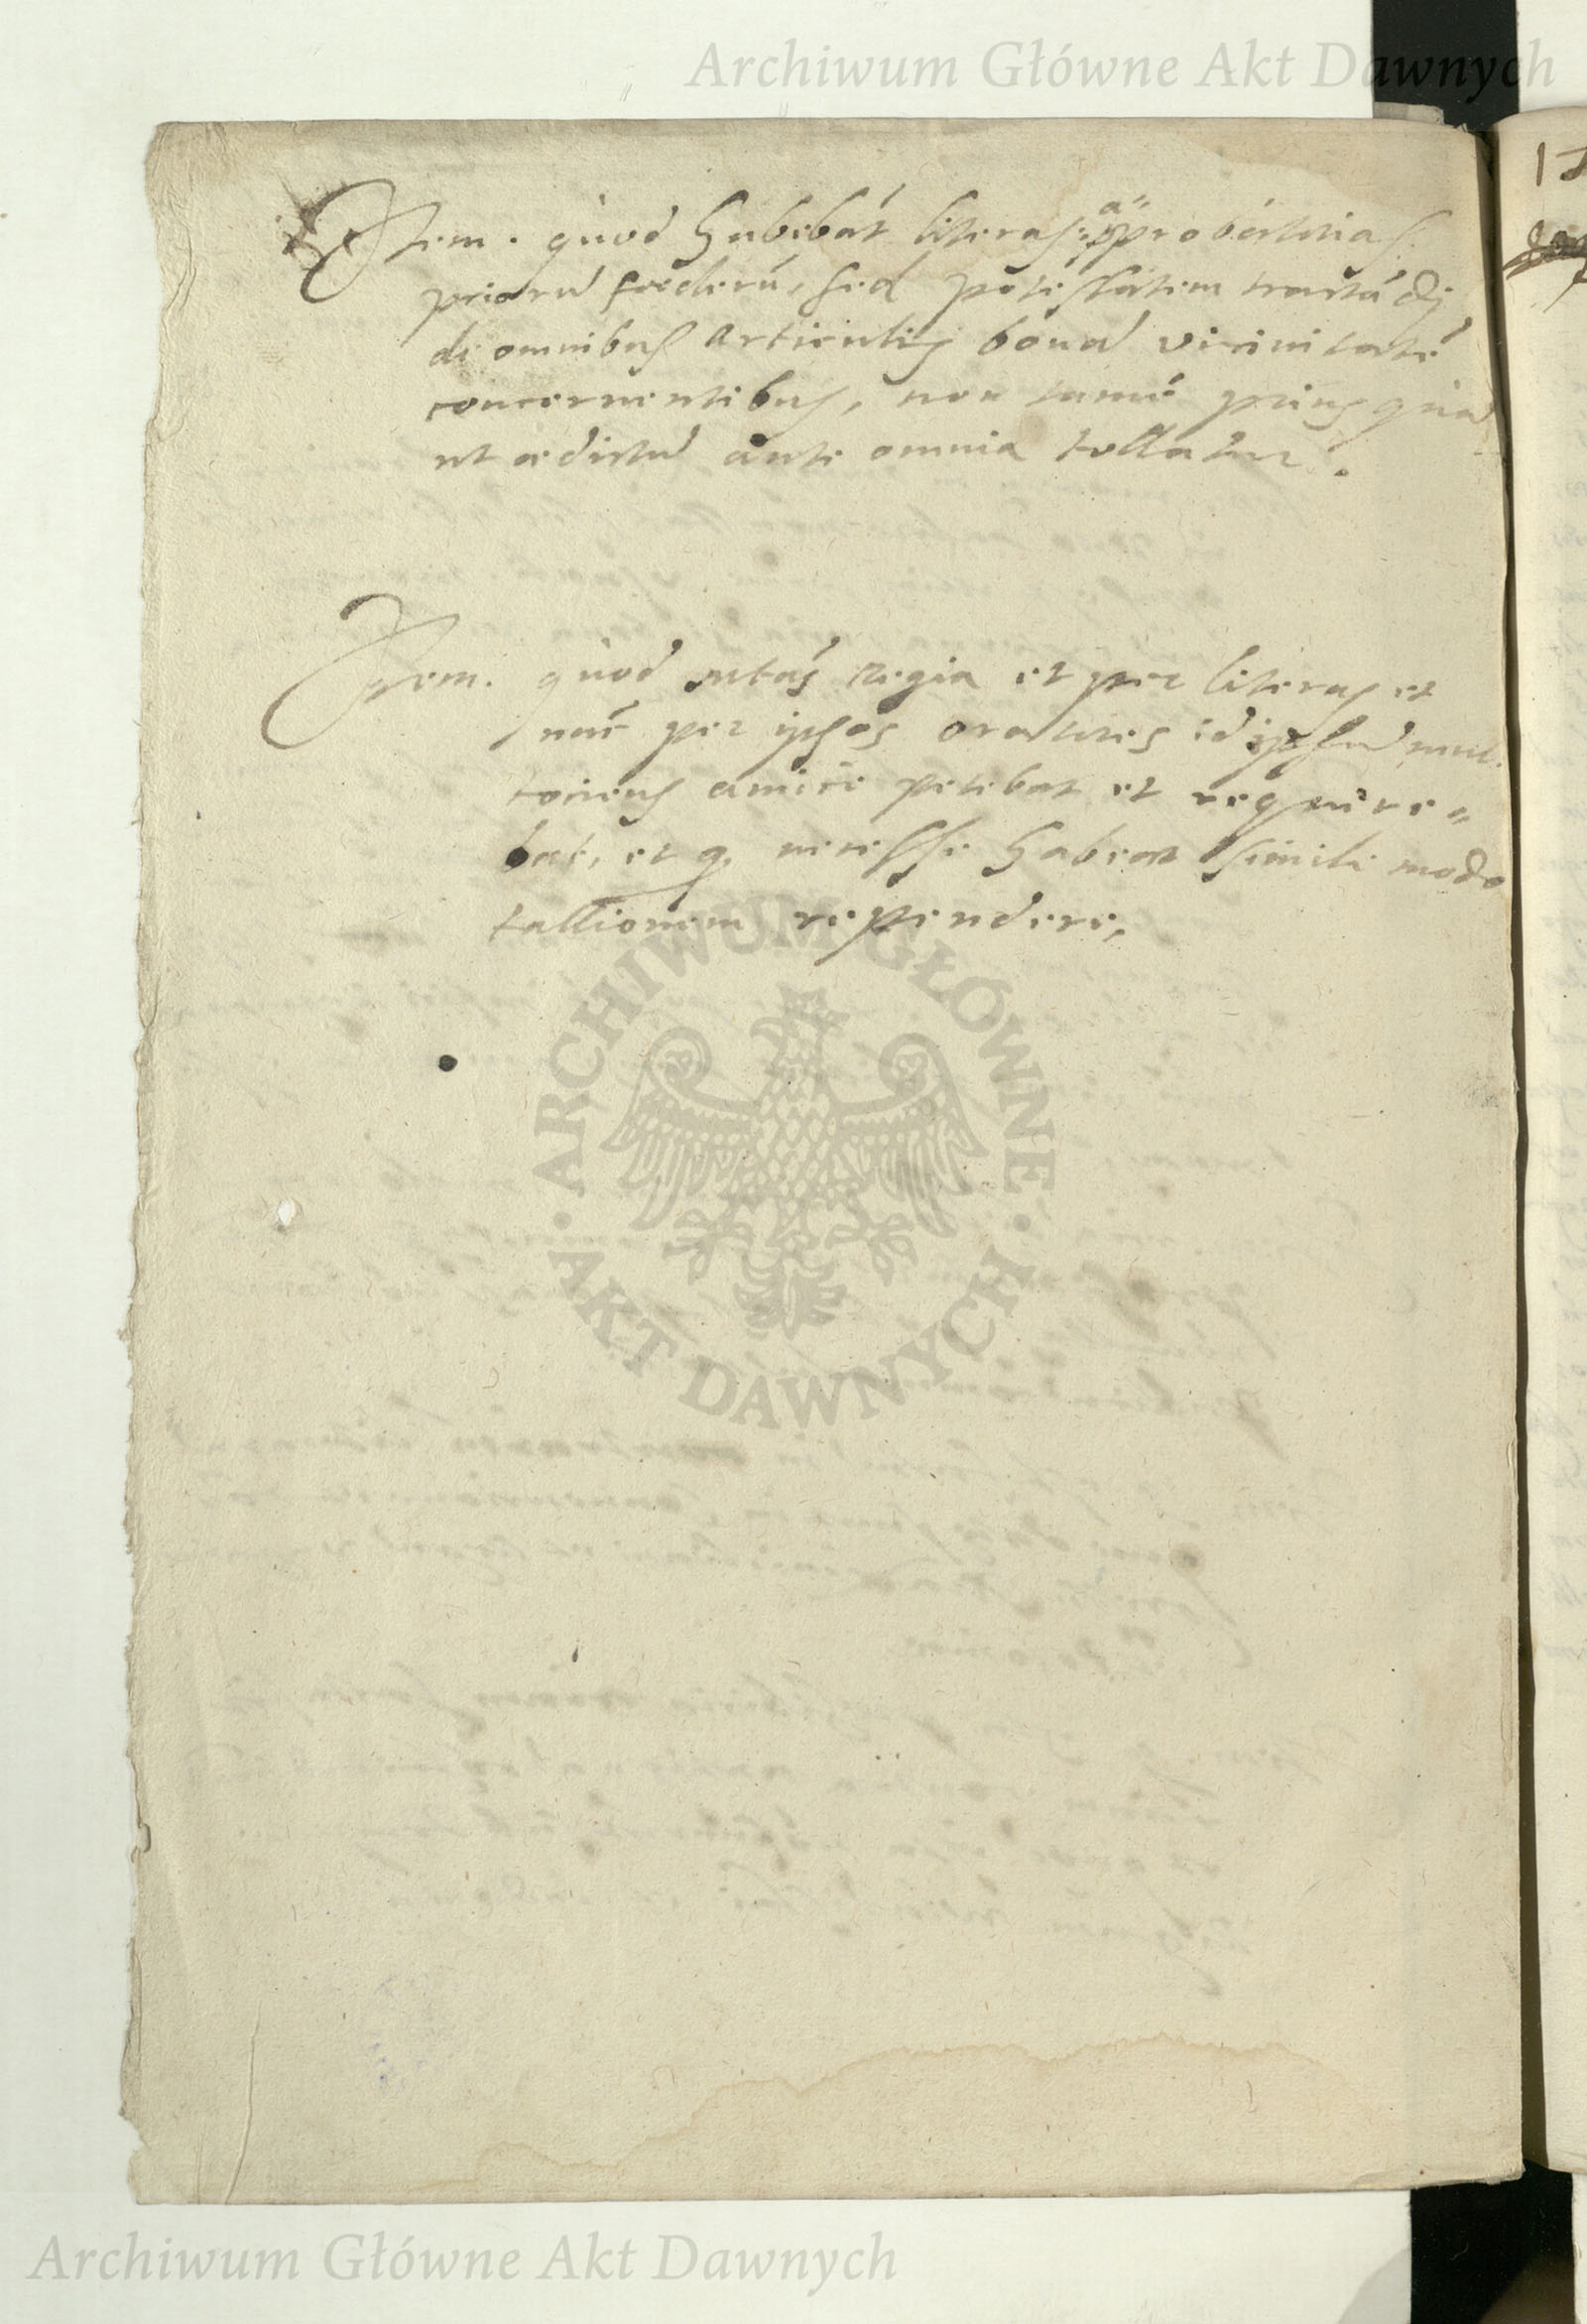 Archiwum Główne Akt Dawnych
Item. quod habebat literas approbatorias
priorũ foederũ, sed potestatem tractãdi
de omnibus articulis bonã vicinitatẽ
concernentibus, non tamẽ prius quã
ut ædictũ ante omnia tollatur.
Item. quod mtas Regia et per literas et
nũc per ipsos oratores id ipsũ mul
tociens amice petebat et require=
bat, et q necesse habeat simili modo
tallionem rependere,
ARCHIWUM GŁÓWNE
AKT DAWNYCH
Archiwum Główne Akt Dawnych